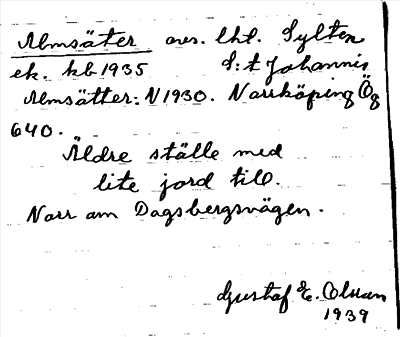 Almsäter avs. lht. Sylten
ek. kb 1935 S:t Johannis
Almsätter: N 1930. Norrköping Ög
640.
Äldre ställe med
lite jord till.
Norr om Dagsbergsvägen.
Gustaf E. Olsson
1939